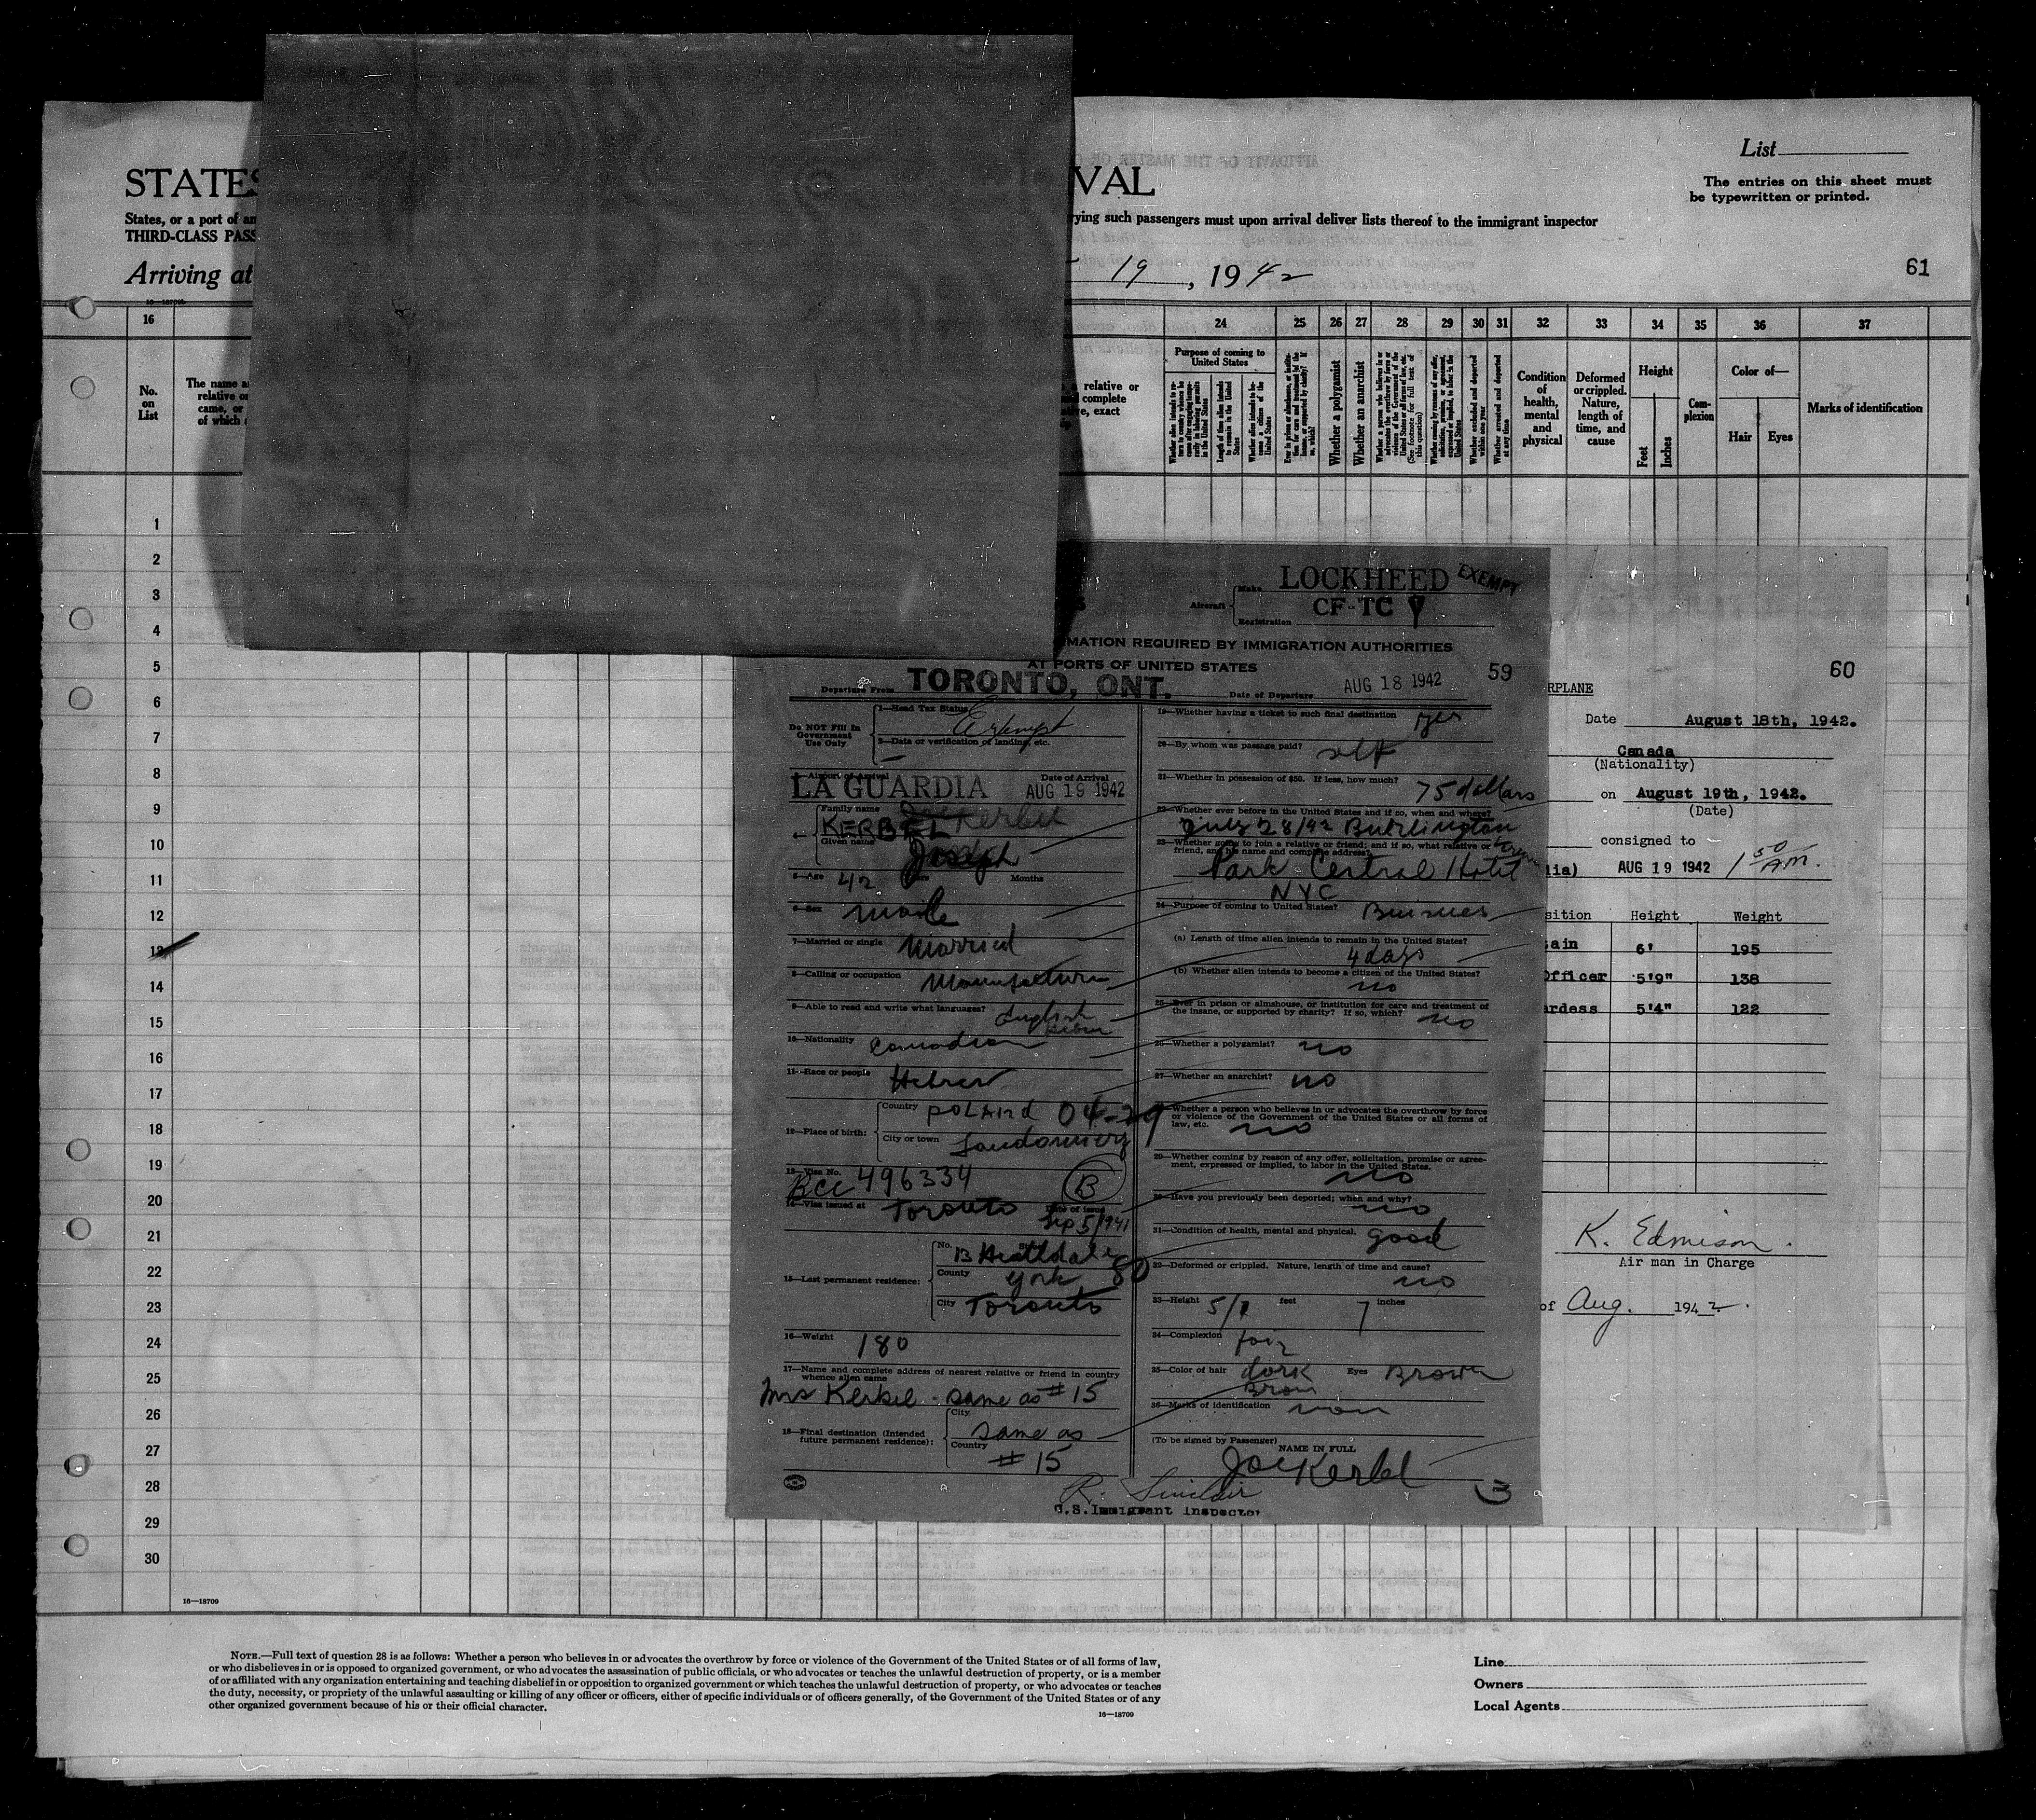 List
The entries on this sheet must
be typewritten or printed.
STATES
VAL
States, or a port of
rying such passengers must upon arrival deliver lists thereof to the immigrant inspector
THIRD-CLASS PASS
Arriving at
19, 1942
61
16 24 25 26 27 28 29 30 31 32 33 34 35 36 37
No.
on
List
The name
relative
came, or
of which
relative or
complete
exact
Purpose of coming to
United States
Whether a polygamist
Whether an anarchist
Condition
of
health,
mental
and
physical
Deformed
or crippled.
Nature,
length of
time, and
cause
Height
Feet
Inches
Com-
plexion
Color of—
Hair
Eyes
Marks of identification
1
2
3
4
5
6
7
8
9
10
11
12
13
14
15
16
17
18
19
20
21
22
23
24
25
26
27
28
29
30
16—18709
Make LOCKHEED EXEMPT
Aircraft
Registration CF-TC
MATION REQUIRED BY IMMIGRATION AUTHORITIES
AT PORTS OF UNITED STATES
59
Departure From TORONTO, ONT. Date of Departure AUG 18 1942
Do NOT Fill In
Government
Use Only
1—Head Tax Status Exempt
2—Data or verification of landing, etc.
3—Airport of Arrival LA GUARDIA Date of Arrival AUG 19 1942
Family name KERBEL Kerbel
Given name Joseph
5—Age 42 Months
6—Sex Male
7—Married or single Married
8—Calling or occupation
9—Able to read and write what languages? English
10—Nationality Canadian
11—Race or people Hebrew
12—Place of birth: Country POLAND 04-29
City or town
13—Visa No. BCC 496334 B
14—Visa issued at Toronto Date of issue Sep 5/1941
15—Last permanent residence: No. 13 Heathdale
County York 80
City Toronto
16—Weight 180
17—Name and complete address of nearest relative or friend in country
whence alien came
Mrs Kerbel - same as #15
18—Final destination (Intended
future permanent residence): City same as
Country #15
19—Whether having a ticket to such final destination yes
20—By whom was passage paid? self
21—Whether in possession of $50. If less, how much?
75 dollars
22—Whether ever before in the United States and if so, when and where?
July 28/42 Burlington
23—Whether going to join a relative or friend; and if so, what relative or
friend, and his name and complete address?
Park Central Hotel
NYC
24—Purpose of coming to United States?
(a) Length of time alien intends to remain in the United States?
4 days
(b) Whether alien intends to become a citizen of the United States?
no
25—Ever in prison or almshouse, or institution for care and treatment of
the insane, or supported by charity? If so, which? no
26—Whether a polygamist? no
27—Whether an anarchist? no
28—Whether a person who believes in or advocates the overthrow by force
or violence of the Government of the United States or all forms of
law, etc. no
29—Whether coming by reason of any offer, solicitation, promise or agree-
ment, expressed or implied, to labor in the United States.
no
30—Have you previously been deported; when and why?
no
31—Condition of health, mental and physical. good
32—Deformed or crippled. Nature, length of time and cause?
no
33—Height 5 feet 7 inches
34—Complexion fair
35—Color of hair dark Eyes Brown
36—Marks of identification
(To be signed by Passenger)
NAME IN FULL
Joe Kerbel
3
R. Sinclair
U.S. Immigrant Inspector
60
RPLANE
Date August 18th, 1942.
Canada
(Nationality)
on August 19th, 1942.
(Date)
consigned to
AUG 19 1942 1 50 AM.
sition Height Weight
ain 6' 195
Officer 5'9" 138
ardess 5'4" 122
K. Edmison.
Air man in Charge
of Aug. 1942.
NOTE.—Full text of question 28 is as follows: Whether a person who believes in or advocates the overthrow by force or violence of the Government of the United States or of all forms of law,
or who disbelieves in or is opposed to organized government, or who advocates the assassination of public officials, or who advocates or teaches the unlawful destruction of property, or is a member
of or affiliated with any organization entertaining and teaching disbelief in or opposition to organized government or which teaches the unlawful destruction of property, or who advocates or teaches
the duty, necessity, or propriety of the unlawful assaulting or killing of any officer or officers, either of specific individuals or of officers generally, of the Government of the United States or of any
other organized government because of his or their official character.
16—18709
Line
Owners
Local Agents